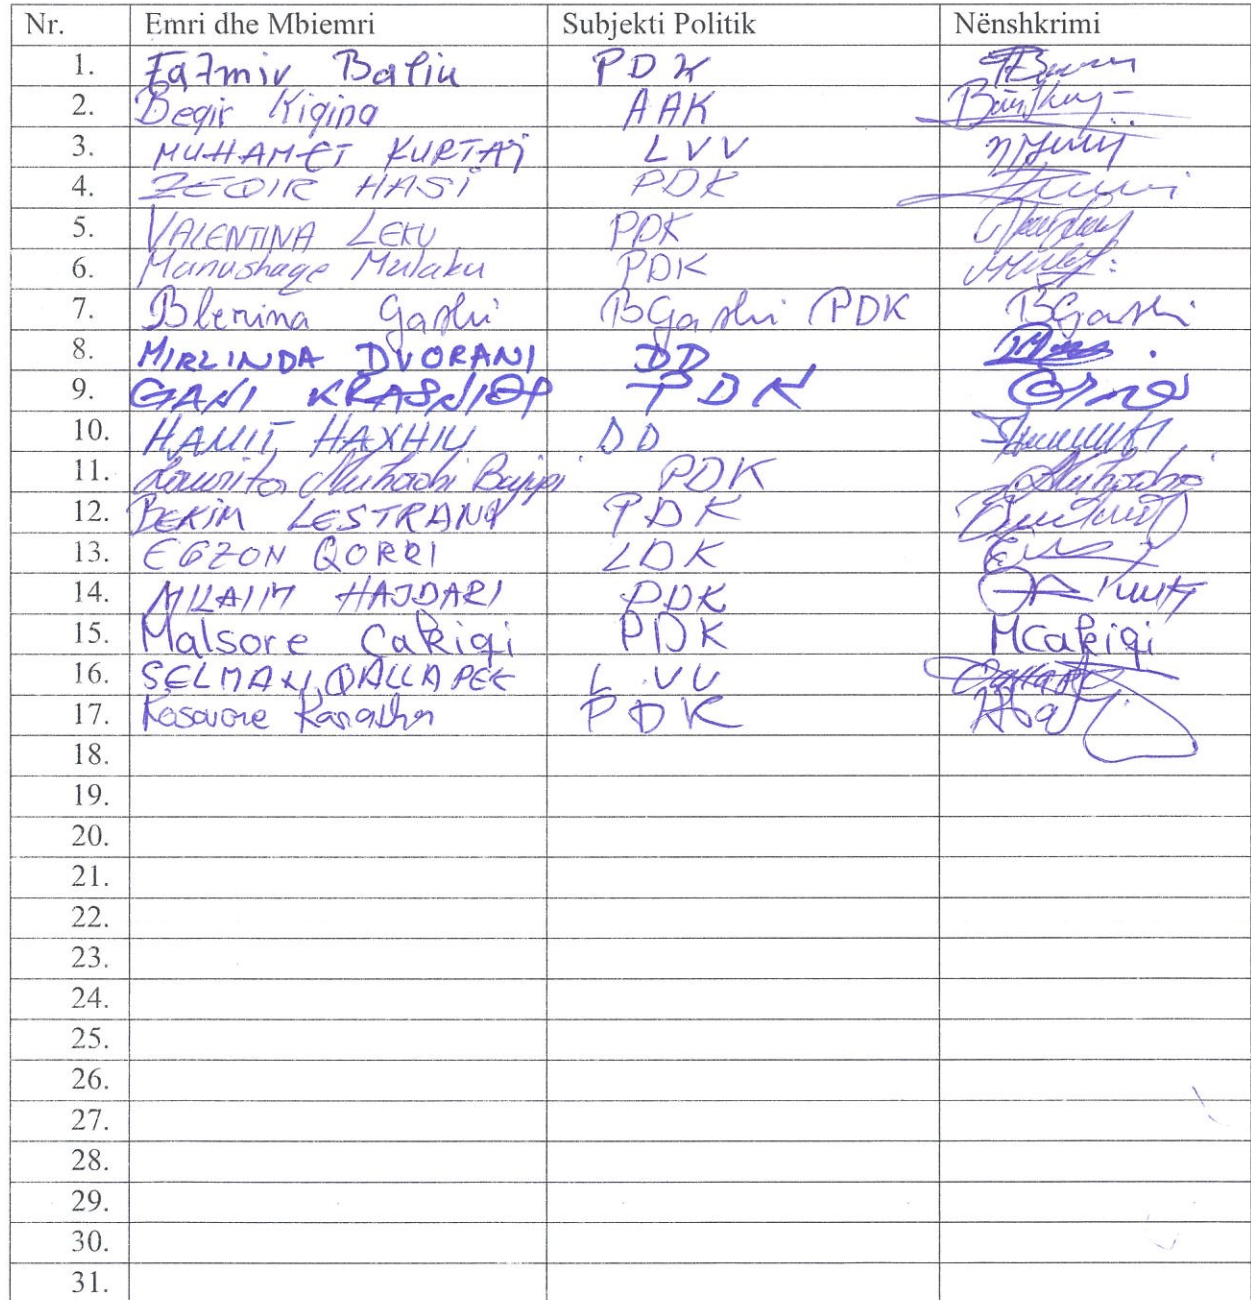 Nr. Emri dhe Mbiemri Subjekti Politik Nënshkrimi
1. Fatmir Baliu PDK
2. Beqir Kiqina AAK
3. MUHAMET KURTAJ LVV
4. ZEQIR HASI PDK
5. VALENTINA LEKU PDK
6. Manushaqe Mulaku PDK
7. Blerina Gashi BGashi PDK BGashi
8. MIRLINDA DVORANI DD
9. GANI KRASNIQI PDK
10. HAMIT HAXHIU DD
11. PDK
12. BEKIM LESTRANI PDK
13. EGZON QORRI LDK
14. MILAIM HAJDARI PDK
15. Malsore Cakiqi PDK MCakiqi
16. SELMAN QALLAPEK LVV
17. Kosovare PDK
18.
19.
20.
21.
22.
23.
24.
25.
26.
27.
28.
29.
30.
31.